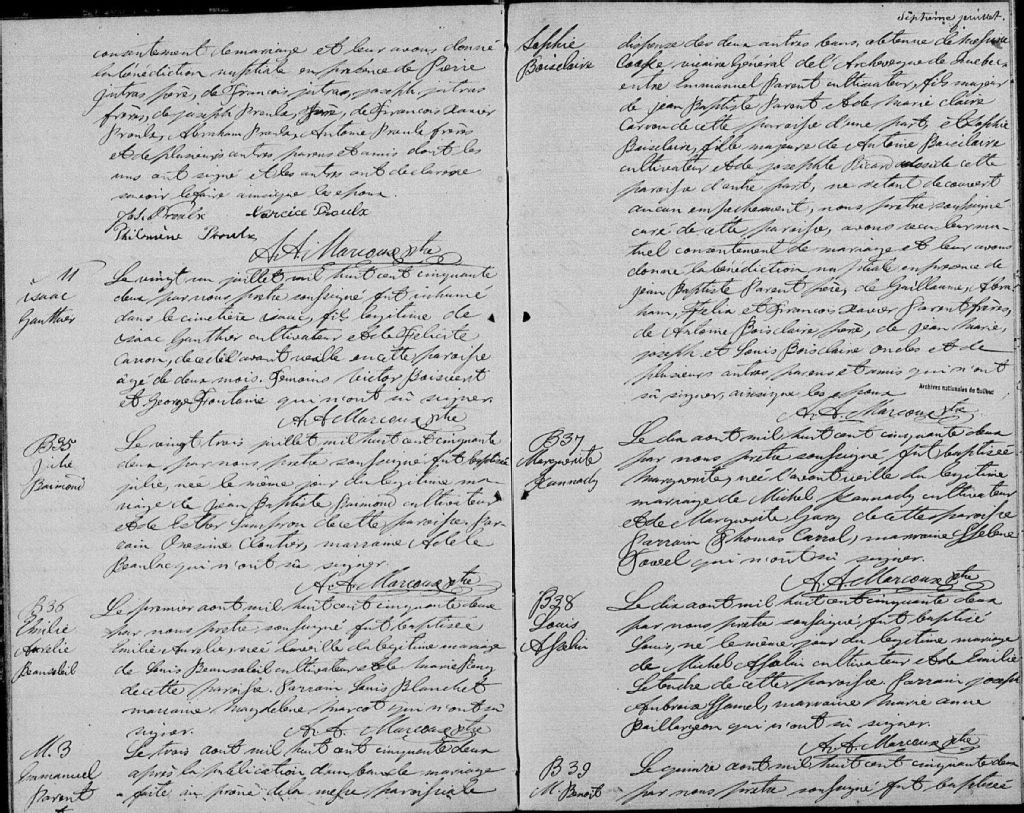 consentement de mariage et leur avons donné
la bénédiction nuptiale en présence de Pierre
Jutras père, de François Jutras, Joseph Jutras
frères, de Joseph Proulx père, de François Xavier
Proulx, Abraham Proulx, Antoine Proulx frères
et de plusieurs autres parens et amis dont les
uns ont signé et les autres ont déclaré ne
savoir le faire ainsi que les epoux
Jos. Proulx Narcice Proulx
Philomène Proulx
A. A. Marcoux ptre
Isaac
Gauthier
Le vingt un juillet mil huit cent cinquante
deux par nous prêtre soussigné fut inhumé
dans le cimetière Isaac, fils légitime de
Isaac Gauthier cultivateur et de Félicité
Caron, décédé avant veille en cette paroisse
âgé de deux mois. Témoins Victor Boisvert
et George Fontaine qui n'ont sû signer.
A. A. Marcoux ptre
B35
Julie
Raimond
Le vingt trois juillet mil huit cent cinquante
deux par nous prêtre soussigné fut baptisée
julie, née le même jour du légitime ma-
riage de Jean Baptiste Raimond cultivateur
et de Esther de cette paroisse. Par-
rain Onesime Cloutier, marraine Adele
Beaulac qui n'ont sû signer.
A. A. Marcoux ptre
B36
Emilie
Aurélie
Beausoleil
Le premier aout mil huit cent cinquante deux
par nous prêtre soussigné fut baptisée
Emilie Aurélie, née la veille du légitime mariage
de Louis Beausoleil cultivateur et de Marie
de cette paroisse. Parrain Louis Blanchet
marraine Magdeleine Marcot qui n'ont su
signer. A. A. Marcoux ptre
M. 3
Emmanuel
Parent
Le trois aout mil huit cent cinquante deux
après la publication d'un banc de mariage
faite au prone de la messe paroissiale
Septième feuillet.
Sophie
Boisclaire
dispense des deux autres bans, obtenue de Messire
Cooke, vicaire Général de l'Archeveque de Quebec
entre Emmanuel Parent cultivateur, fils majeur
de Jean Baptiste Parent et de Marie Claire
Caron de cette paroisse d'une part, et Sophie
Boisclaire, fille majeure de Antoine Boisclaire
cultivateur et de Josephte Ricard aussi de cette
paroisse d'autre part, ne s'etant découvert
aucun empechement, nous prêtre soussigné
curé de cette paroisse, avons reçu leur mu-
tuel consentement de mariage et leur avons
donné la bénédiction nuptiale en présence de
Jean Baptiste Parent père, de Guillaume, Abra-
ham, Felix et François Xavier Parent frères,
de Antoine Boisclaire père, de Jean Marie,
Joseph et Louis Boisclaire oncles et de
plusieurs autres parens et amis qui n'ont
sû signer, ainsi que les epoux
Archives nationales du Québec
A. A. Marcoux ptre
B37
Marguerite
Kannady
Le dix aout mil huit cent cinquante deux
par nous prêtre soussigné fut baptisée
Marguerite, née l'avant veille du légitime
mariage de Michel Kannady cultivateur
et de Marguerite Gary de cette paroisse
Parrain Thomas Carrol, marraine
qui n'ont sû signer.
A. A. Marcoux ptre
B38
Louis
Asselin
Le dix aout mil huit cent cinquante deux
par nous prêtre soussigné fut baptisé
Louis, né le même jour du légitime mariage
de Michel Asselin cultivateur et de Emilie
Letendre de cette paroisse. Parrain Joseph
Ambroise Hamel, marraine Marie Anne
Baillargeon qui n'ont sû signer.
A. A. Marcoux ptre
B39
M. Benoit
Le quinze aout mil huit cent cinquante deux
par nous prêtre soussigné fut baptisée